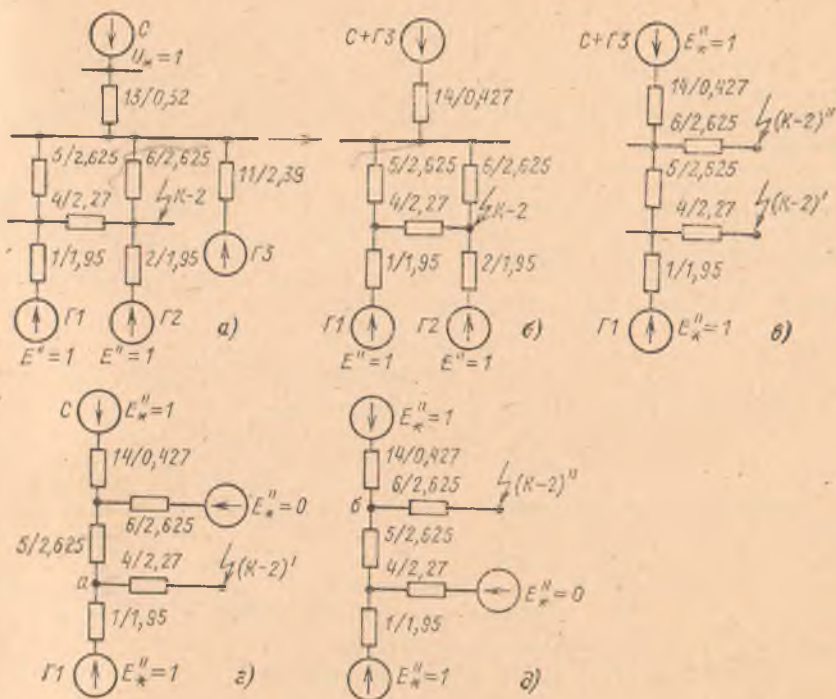 С
U*=1
13/0,52
5/2,625
6/2,625
11/2,39
4/2,27
К-2
1/1,95
2/1,95
Г3
Г1
Г2
а)
E"=1
E"=1
С+Г3
14/0,427
5/2,625
6/2,625
4/2,27
К-2
1/1,95
2/1,95
Г1
Г2
б)
E"=1
E"=1
С+Г3
E*"=1
14/0,427
6/2,625
(К-2)"
5/2,625
4/2,27
(К-2)'
1/1,95
Г1
E*"=1
в)
С
E*"=1
14/0,427
E*"=0
6/2,625
5/2,625
4/2,27
(К-2)'
а
1/1,95
Г1
E*"=1
г)
E*"=1
14/0,427
6/2,625
(К-2)"
б
5/2,625
4/2,27
E*"=0
1/1,95
E*"=1
д)